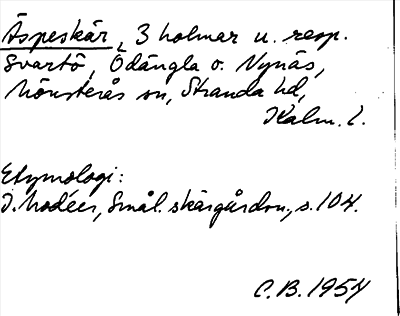 Äspeskär, 3 holmar u. resp.
Svartö, Ödängla o. Vynäs,
Mönsterås sn, Stranda hd,
Kalm. l.
Etymologi:
I. Modéer, Smål. skärgårdsn., s. 104.
C.B. 1954